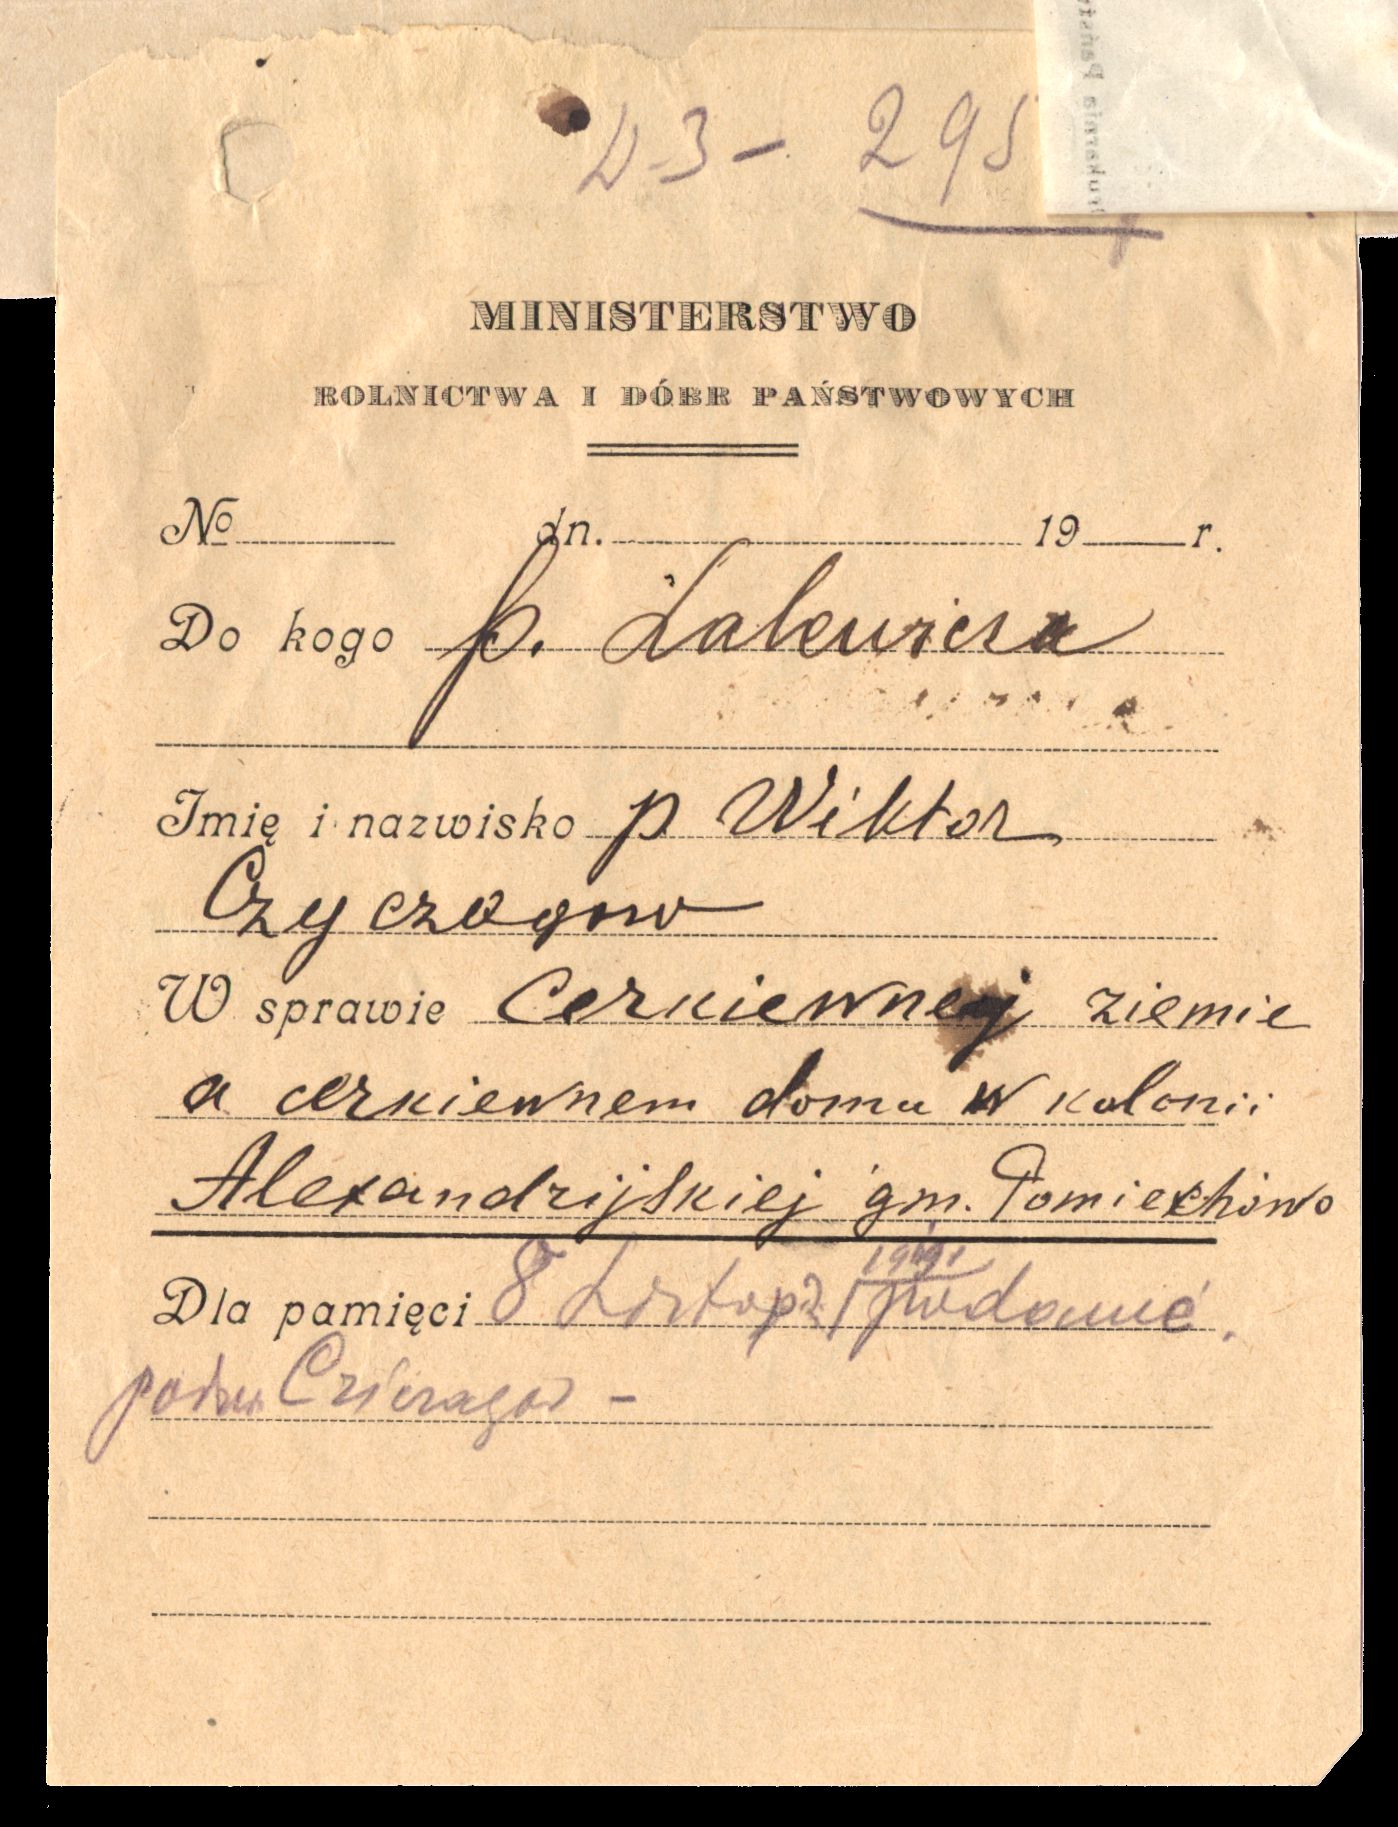 D-3 - 295
MINISTERSTWO
ROLNICTWA I DÓBR PAŃSTWOWYCH
№ dn. 19 r.
Do kogo p. Zalewicza
Imię i nazwisko p Wiktor
Czyczogow
W sprawie Cerkiewnej ziemie
a cerkiewnem domu w kolonii
Alexandrijskiej gm. Pomiechowo
Dla pamięci 8 Listop.
Cziczagow -